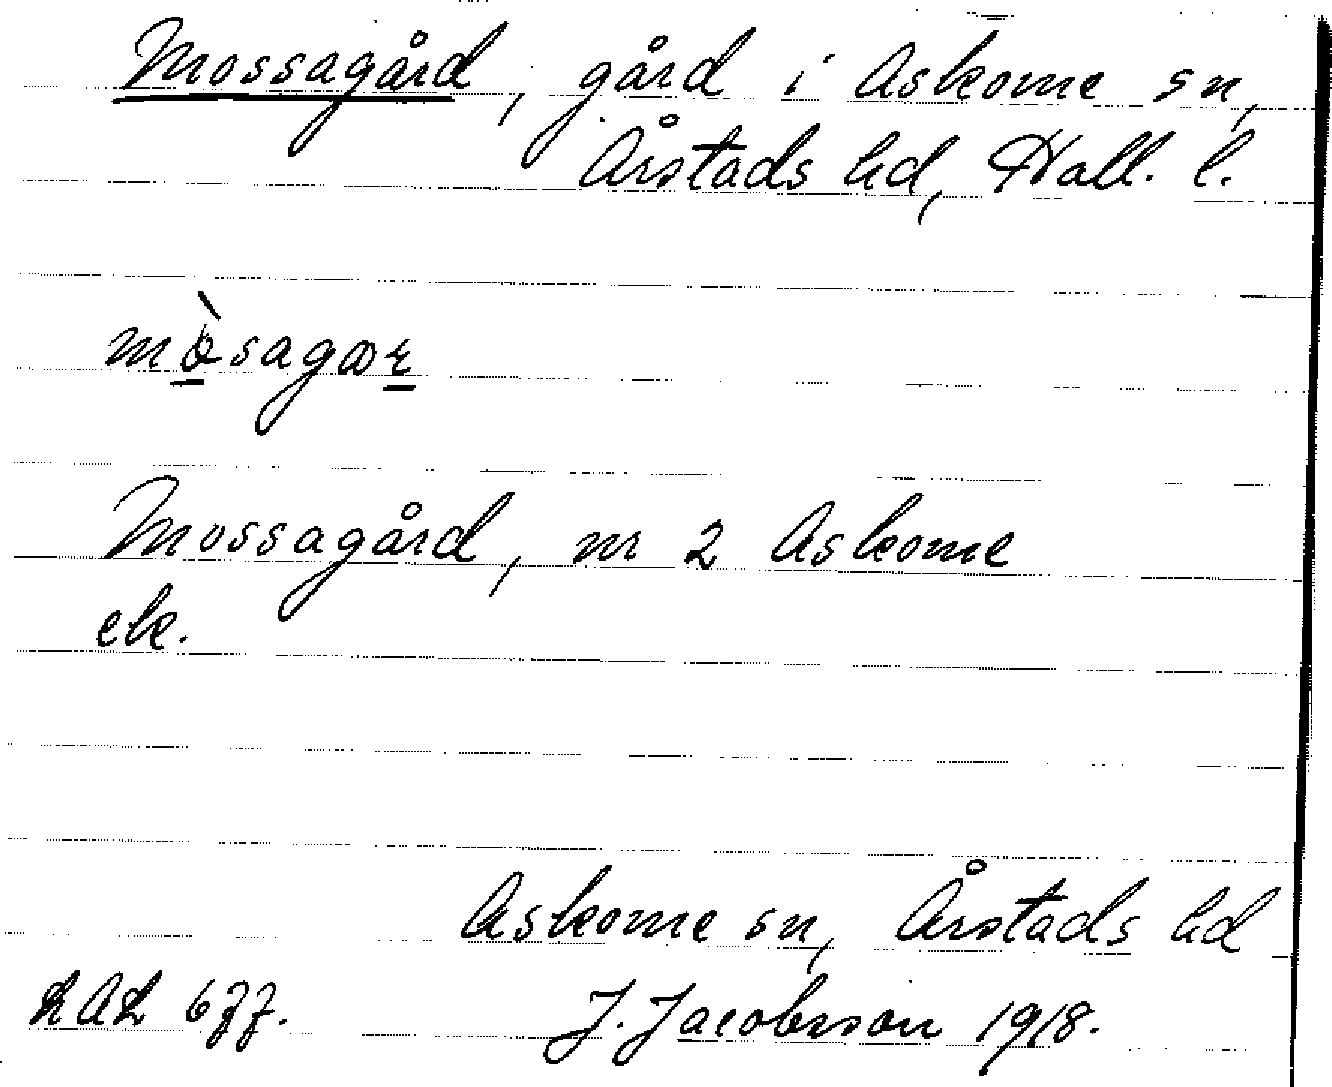 Mossagård, gård i Askome sn,
Årstads hd, Hall. l.
mòsagær
Mossagård, nr 2 Askome
ek.
Askome sn, Årstads hd
LAL 677. J. Jacobsson 1918.